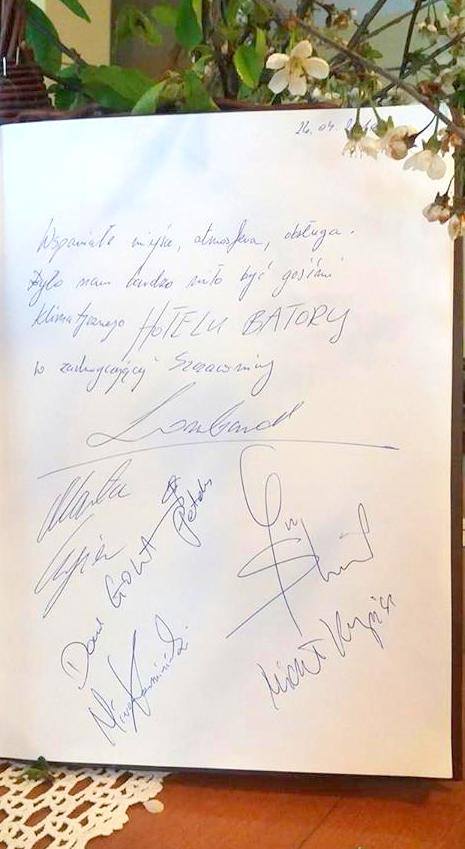 26.04.
Wspaniałe miejsce, atmosfera, obsługa.
Było nam bardzo miło być gośćmi
klimatycznego HOTELU BATORY
w zachwycającej Szczawnicy
Lombard
Marta
Cugier
Daniel GOLA Patalas
Mira Kamiński
Michał Kwapisz